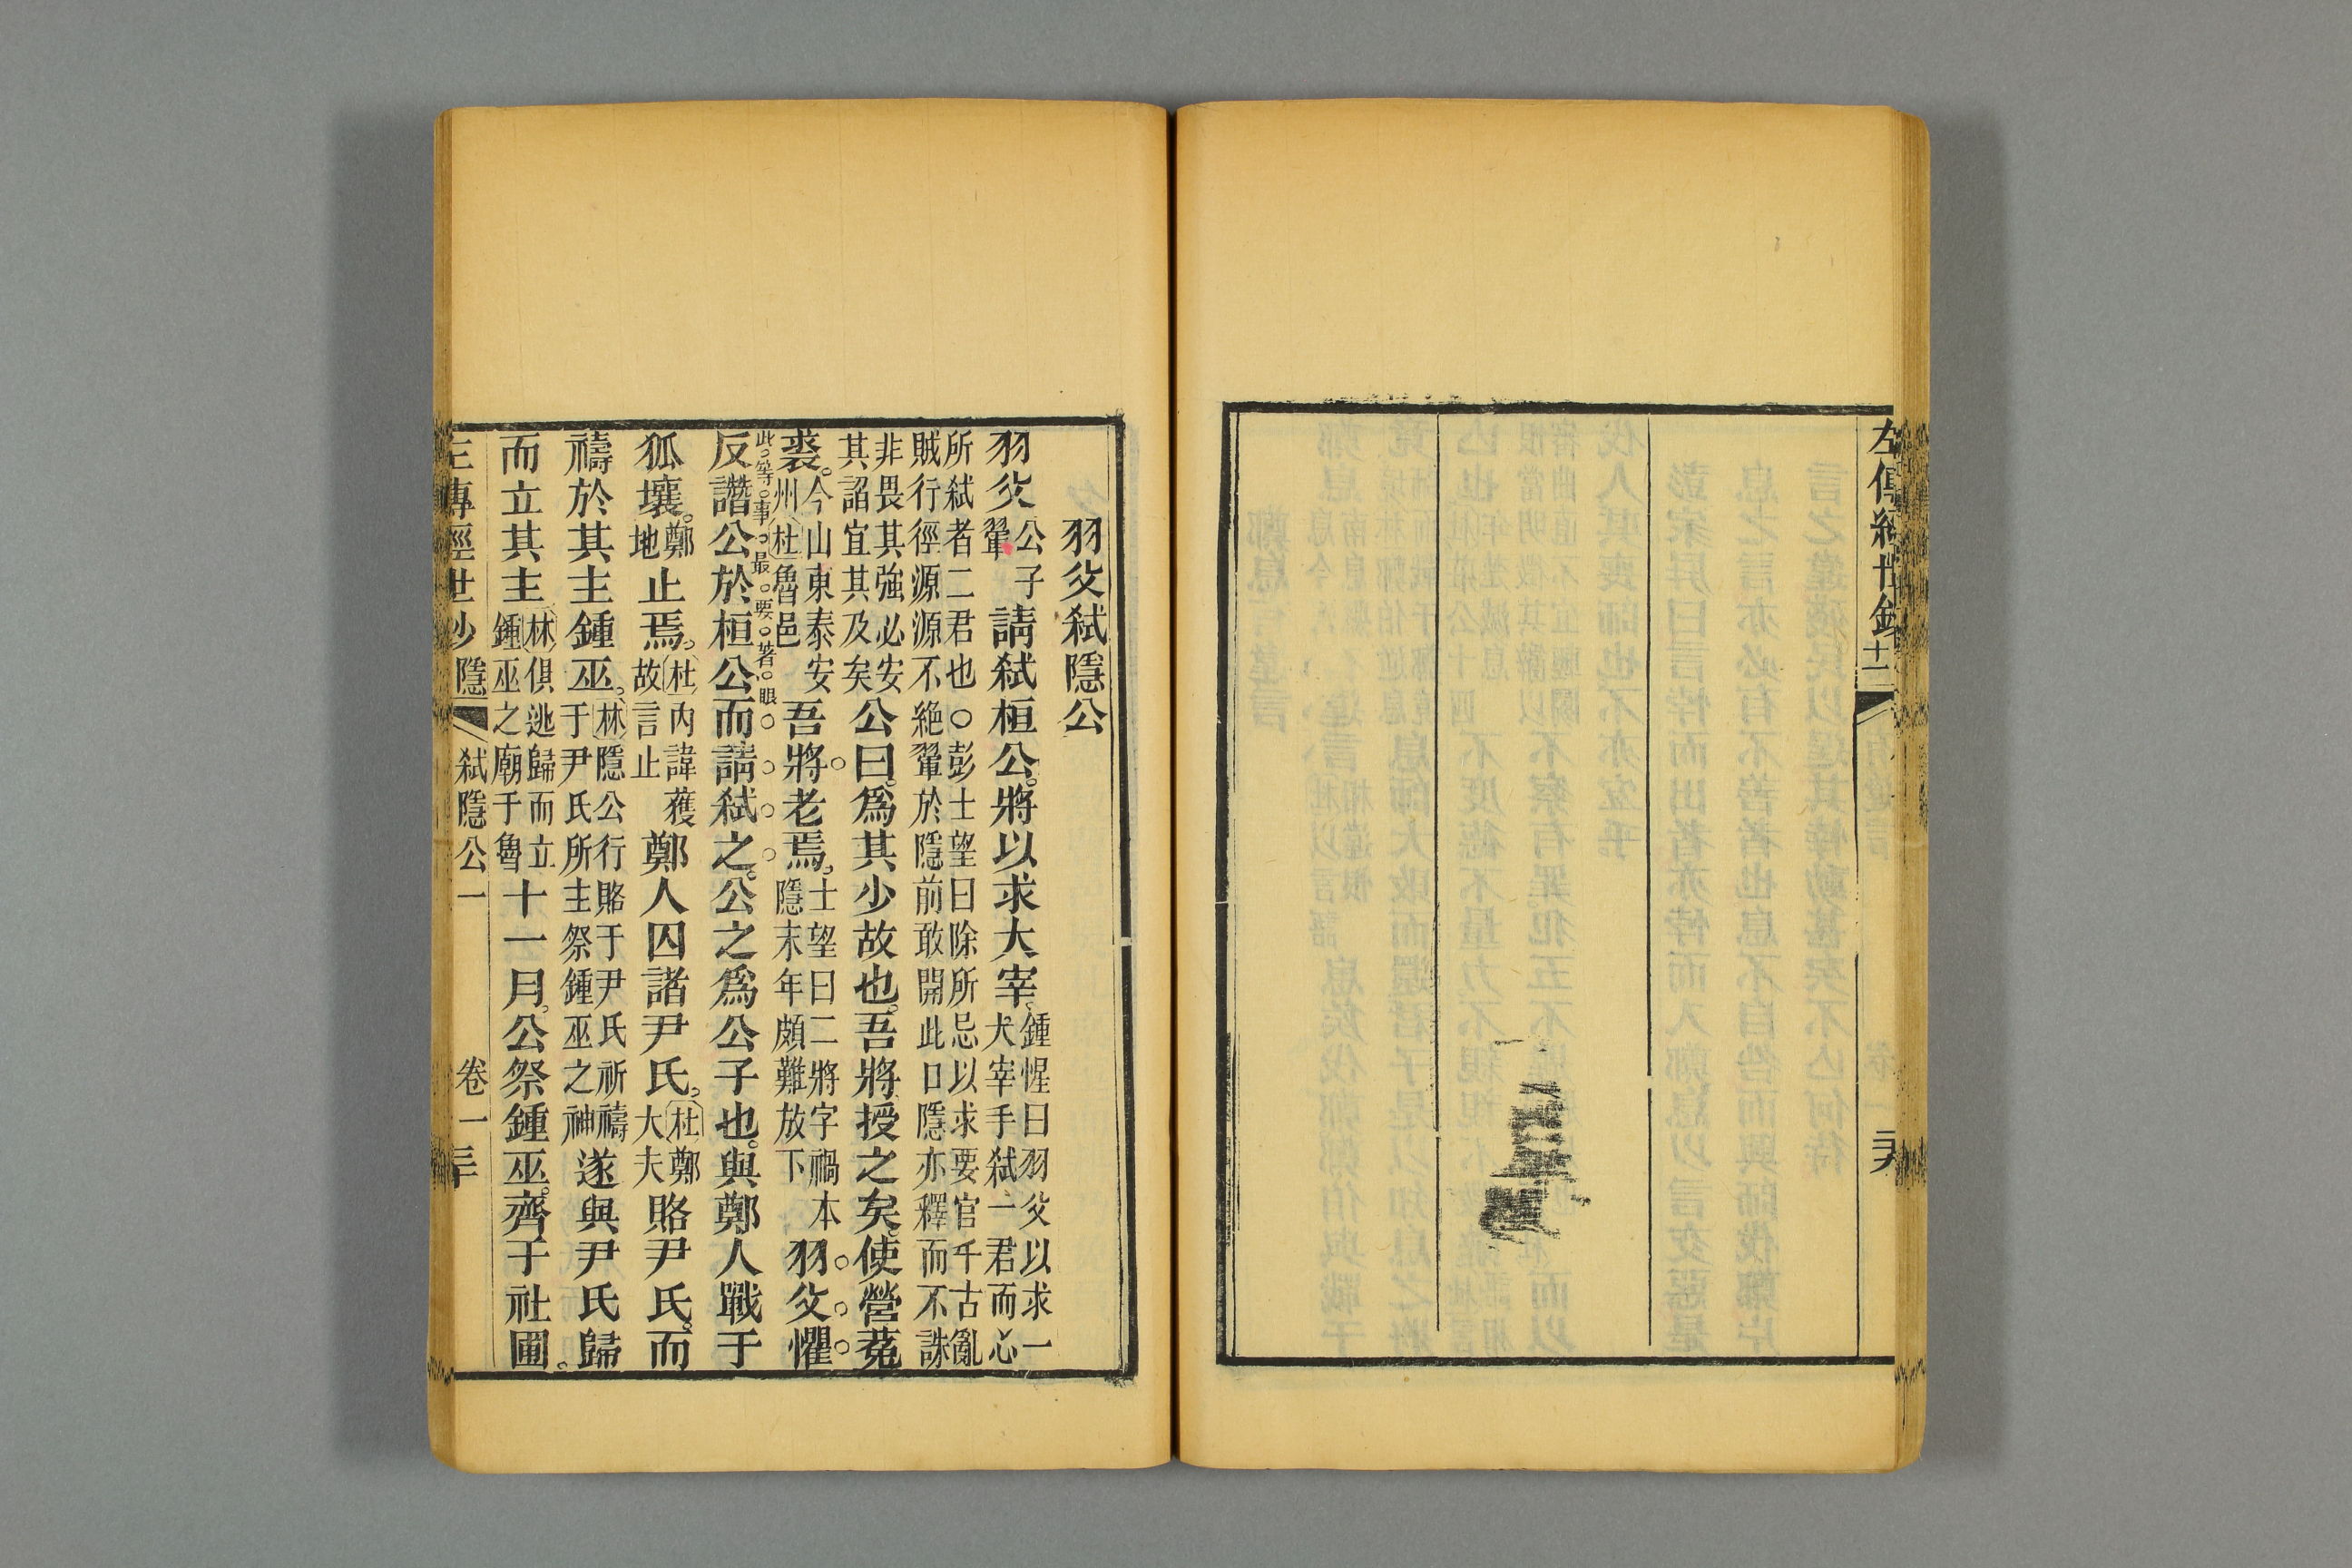 左傳經世鈔
羽父弒隱公
羽父公子翬請弒桓公。將以求大宰。鍾惺曰羽父以求一犬宰手弒一君而忘
所弒者二君也○彭士望曰除所忌以求要官千古亂賊行徑源源不絶翬於隱前敢開此口隱亦釋而不誅
非畏其強必安其詔宜其及矣公曰。爲其少故也。吾將授之矣。使營菟
裘。今山東泰安州杜魯邑吾將老焉。士望曰二將字禍本隱末年頗難放下羽父懼
此等事最要著眼
反譖公於桓公而請弒之。公之爲公子也。與鄭人戰于
狐壤。鄭地止焉。杜內諱獲故言止鄭人囚諸尹氏。杜鄭大夫賂尹氏。而
禱於其主鍾巫。林隱公行賂于尹氏祈禱于尹氏所主祭鍾巫之神遂與尹氏歸
而立其主林俱逃歸而立鍾巫之廟于魯十一月。公祭鍾巫。齊于社圃。
左傳經世鈔 隱 弒隱公一 卷一